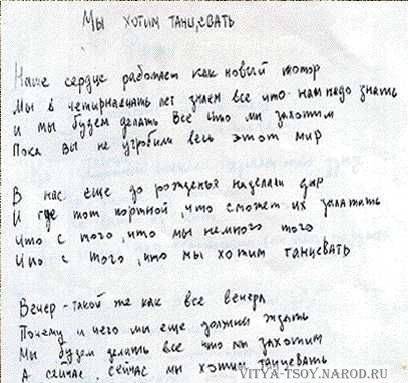 Мы хотим танцевать
Наше сердце работает как новый мотор
Мы в четырнадцать лет знаем все что нам надо знать
И мы будем делать все что мы захотим
Пока вы не угробили весь этот мир
В нас еще до рожденья наделали дыр
И где тот портной, что сможет их залатать
Что с того, что мы немного того
Что с того, что мы хотим танцевать
Вечер - такой же как все вечера
Почему и чего мы еще должны ждать
Мы будем делать все что мы захотим
А сейчас, сейчас мы хотим танцевать
VITYA-TSOY.NAROD.RU